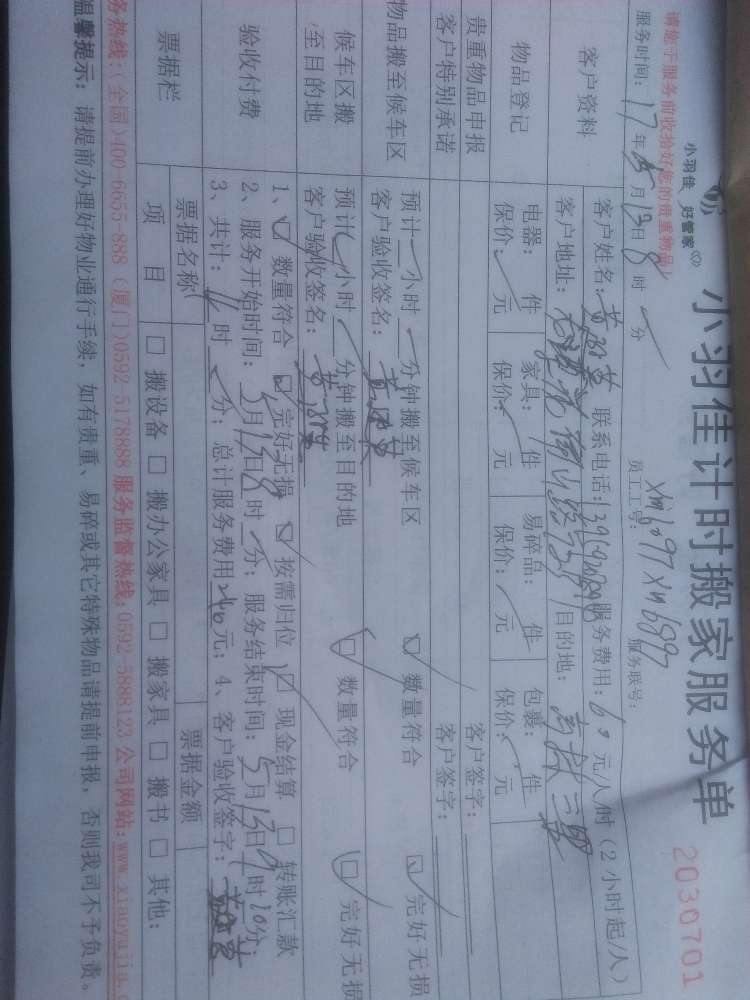 小羽佳 好管家
小羽佳计时搬家服务单
2030701
请您于服务前收拾好您的贵重物品!
服务时间: 17年 月13日8时 分 员工工号: xm6097 xm6897 服务联号:
客户资料
客户姓名: 联系电话: 服务费用: 60元/人/时 (2小时起/人)
客户地址: 目的地:
物品登记
电器: 件 家具: 件 易碎品: 件 包裹: 件
保价: 元 保价: 元 保价: 元 保价: 元
贵重物品申报 客户签字:
客户特别承诺 客户签字:
物品搬至候车区
预计 小时 分钟搬至候车区 ☑ 数量符合 ☑ 完好无损
客户验收签名:
候车区搬至目的地
预计 小时 分钟搬至目的地 ☑ 数量符合 ☑ 完好无损
客户验收签名:
验收付费
1、☑ 数量符合 ☑ 完好无损 ☑ 按需归位 ☑ 现金结算 □ 转账汇款
2、服务开始时间: 5月13日8时 分; 服务结束时间: 5月13日 时20分;
3、共计: 时 分; 总计服务费用240元; 4、客户验收签字:
票据栏
票据名称 票据金额
项 目 □ 搬设备 □ 搬办公家具 □ 搬家具 □ 搬书 □ 其他:
务热线: (全国)400-6655-888 (厦门)0592-5178888 服务监督热线: 0592-5888123 公司网站: www.xiaoyujia.c
温馨提示: 请提前办理好物业通行手续, 如有贵重、易碎或其它特殊物品请提前申报, 否则我司不予负责。